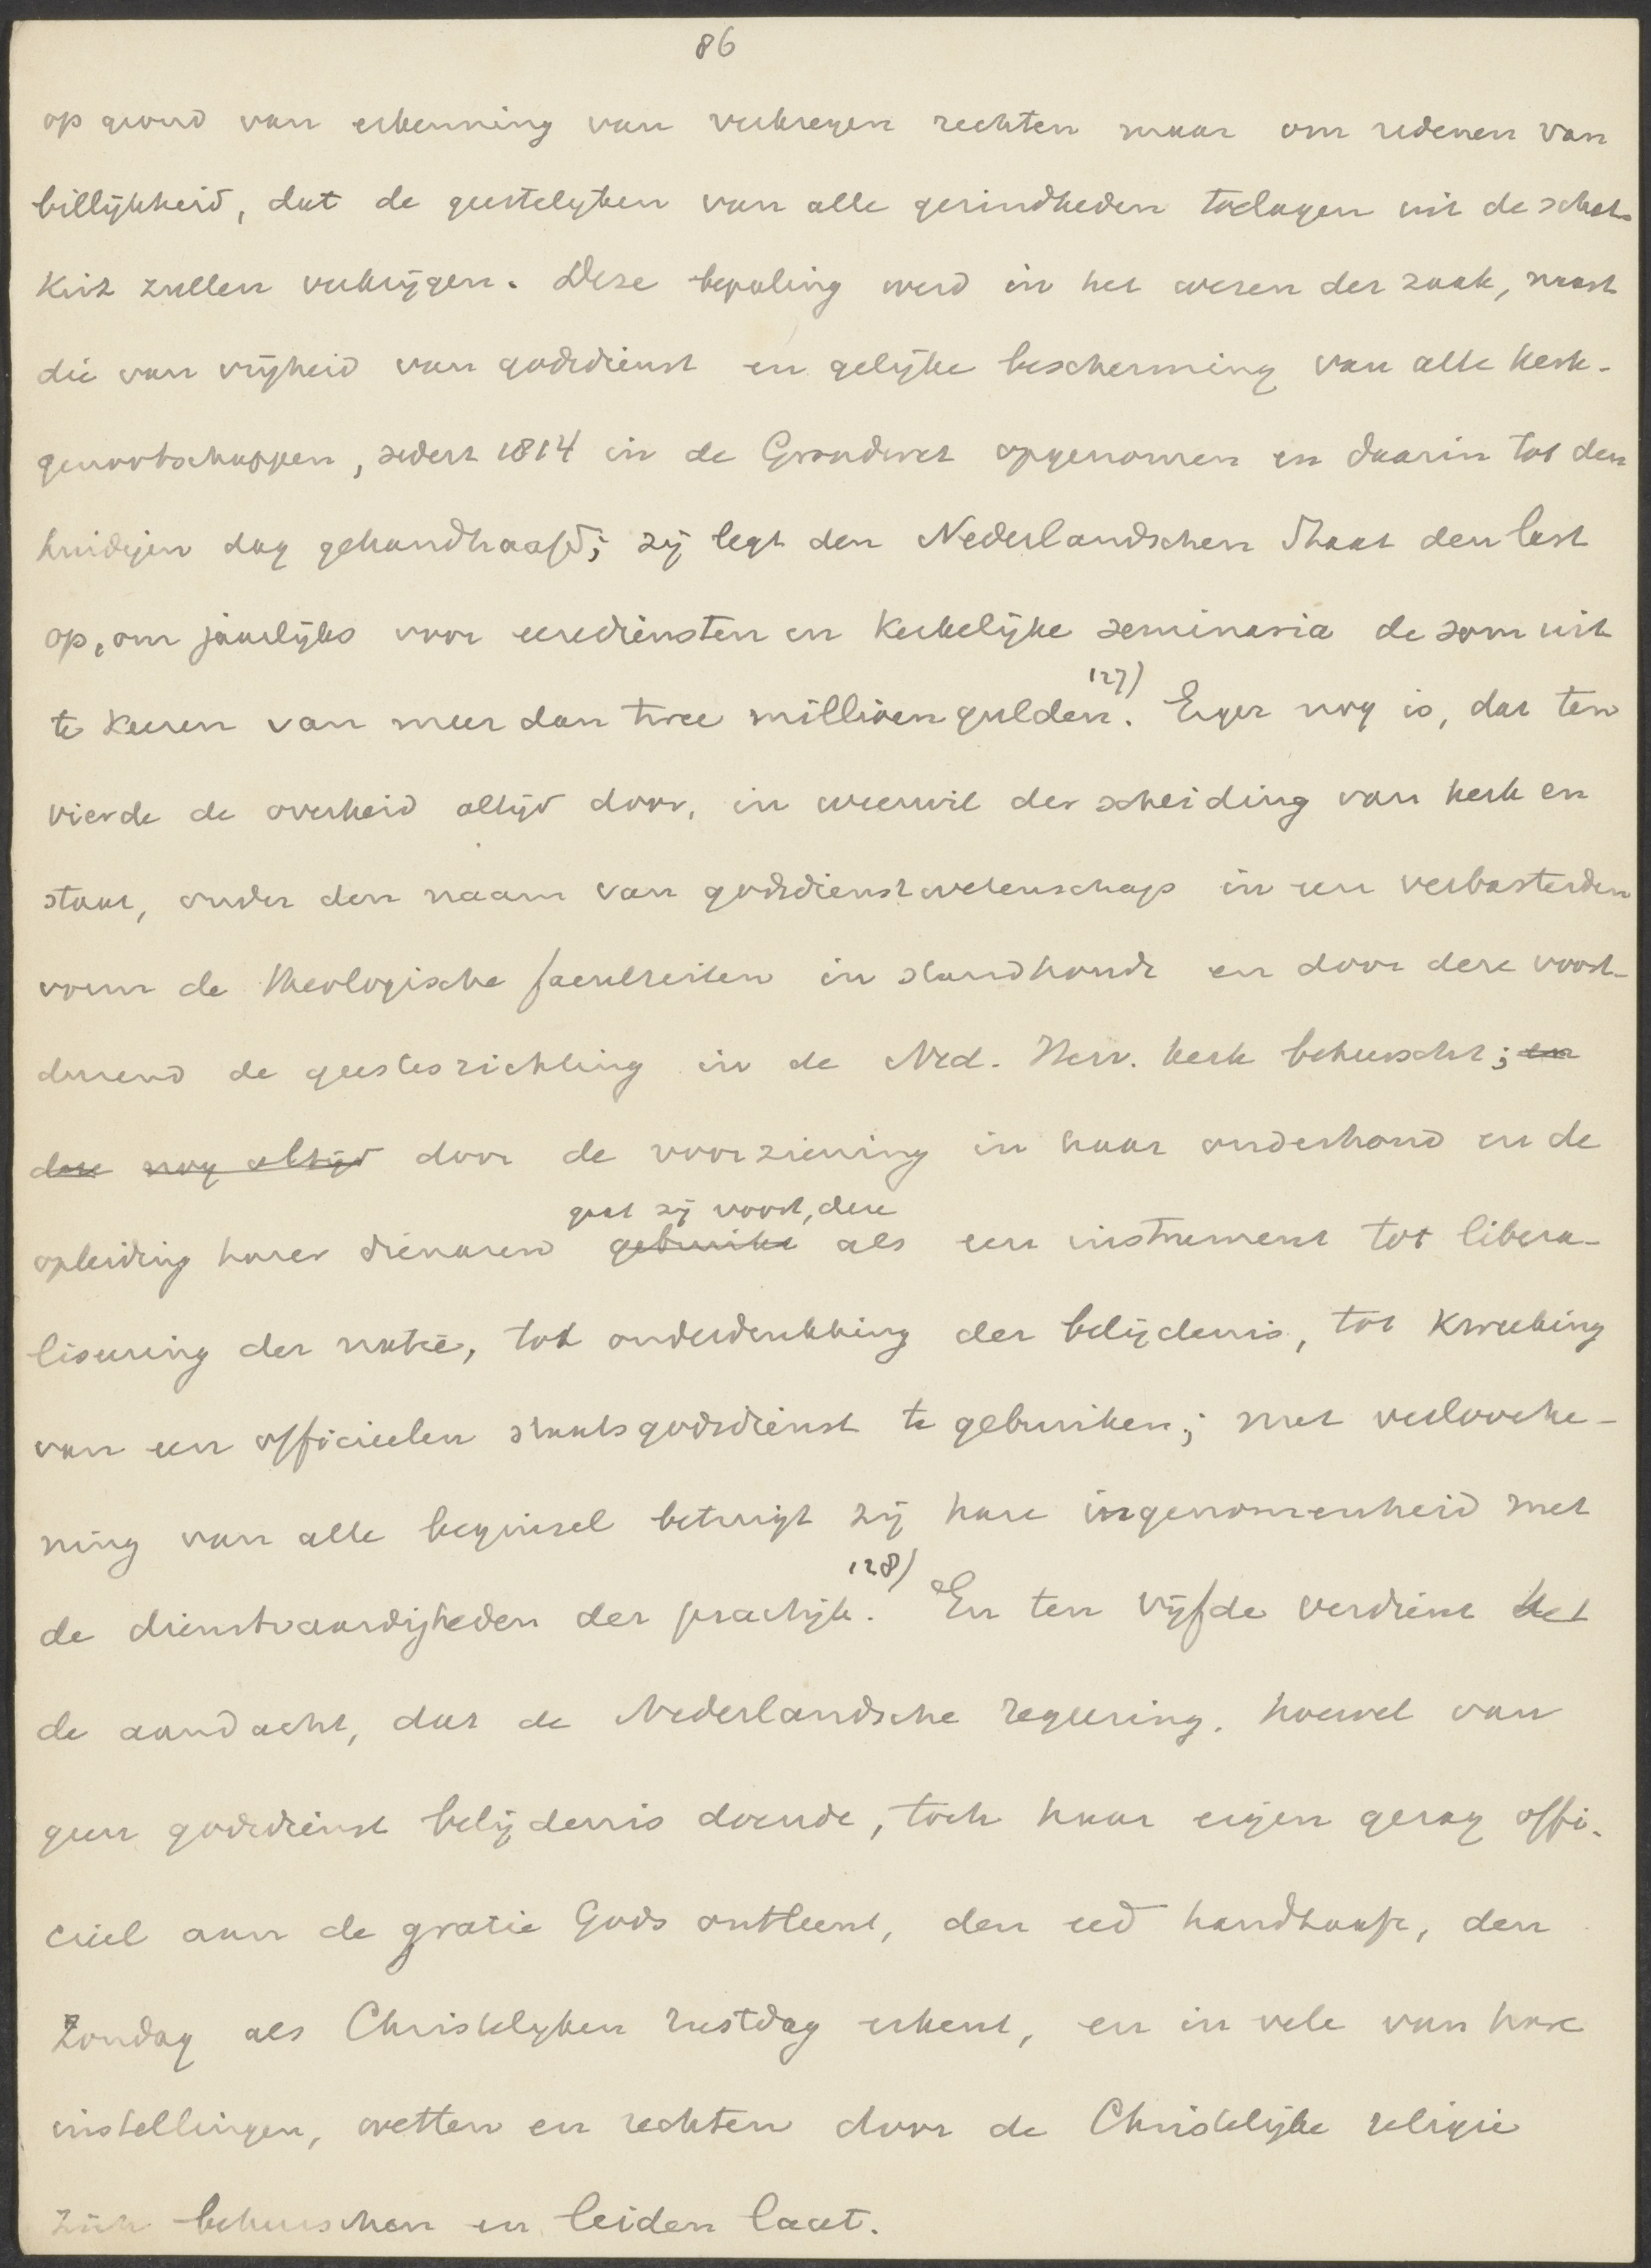 86
op grond van erkenning van verkregen rechten maar om redenen van
billijkheid, dat de geestelijken van alle gezindheden toelagen uit de schat-
kist zullen verkrijgen. Deze bepaling werd in het wezen der zaak, naast
die van vrijheid van godsdienst en gelijke bescherming van alle kerk-
genootschappen, sedert 1814 in de Grondwet opgenomen en daarin tot den
huidigen dag gehandhaafd; zij legt den Nederlandschen Staat den last
op, om jaarlijks voor eerediensten en kerkelijke seminaria de som uit
te keeren van meer dan twee millioen gulden. 127) Erger nog is, dat ten
vierde de overheid altijd door, in weerwil der scheiding van kerk en
staat, onder den naam van godsdienstwetenschap in een verbasterden
vorm de theologische faculteiten in stand houdt en door deze voort-
durend de geestesrichting in de Ned. Herv. kerk beheerscht; en
deze nog altijd door de voorziening in haar onderhoud en de
gaat zij voort, deze
opleiding harer dienaren gebruikt als een instrument tot libera-
liseering der natie, tot onderdrukking der belijdenis, tot kweeking
van een officieelen staatsgodsdienst te gebruiken; met verlooche-
ning van alle beginsel betuigt zij hare ingenomenheid met
de dienstvaardigheden der practijk. 128) En ten vijfde verdient het
de aandacht, dat de Nederlandsche regeering, hoewel van
geen godsdienst belijdenis doende, toch haar eigen gezag offi-
cieel aan de gratie Gods ontleent, den eed handhaaft, den
Zondag als Christelijken rustdag erkent, en in vele van hare
instellingen, wetten en rechten door de Christelijke religie
zich beheerschen en leiden laat.